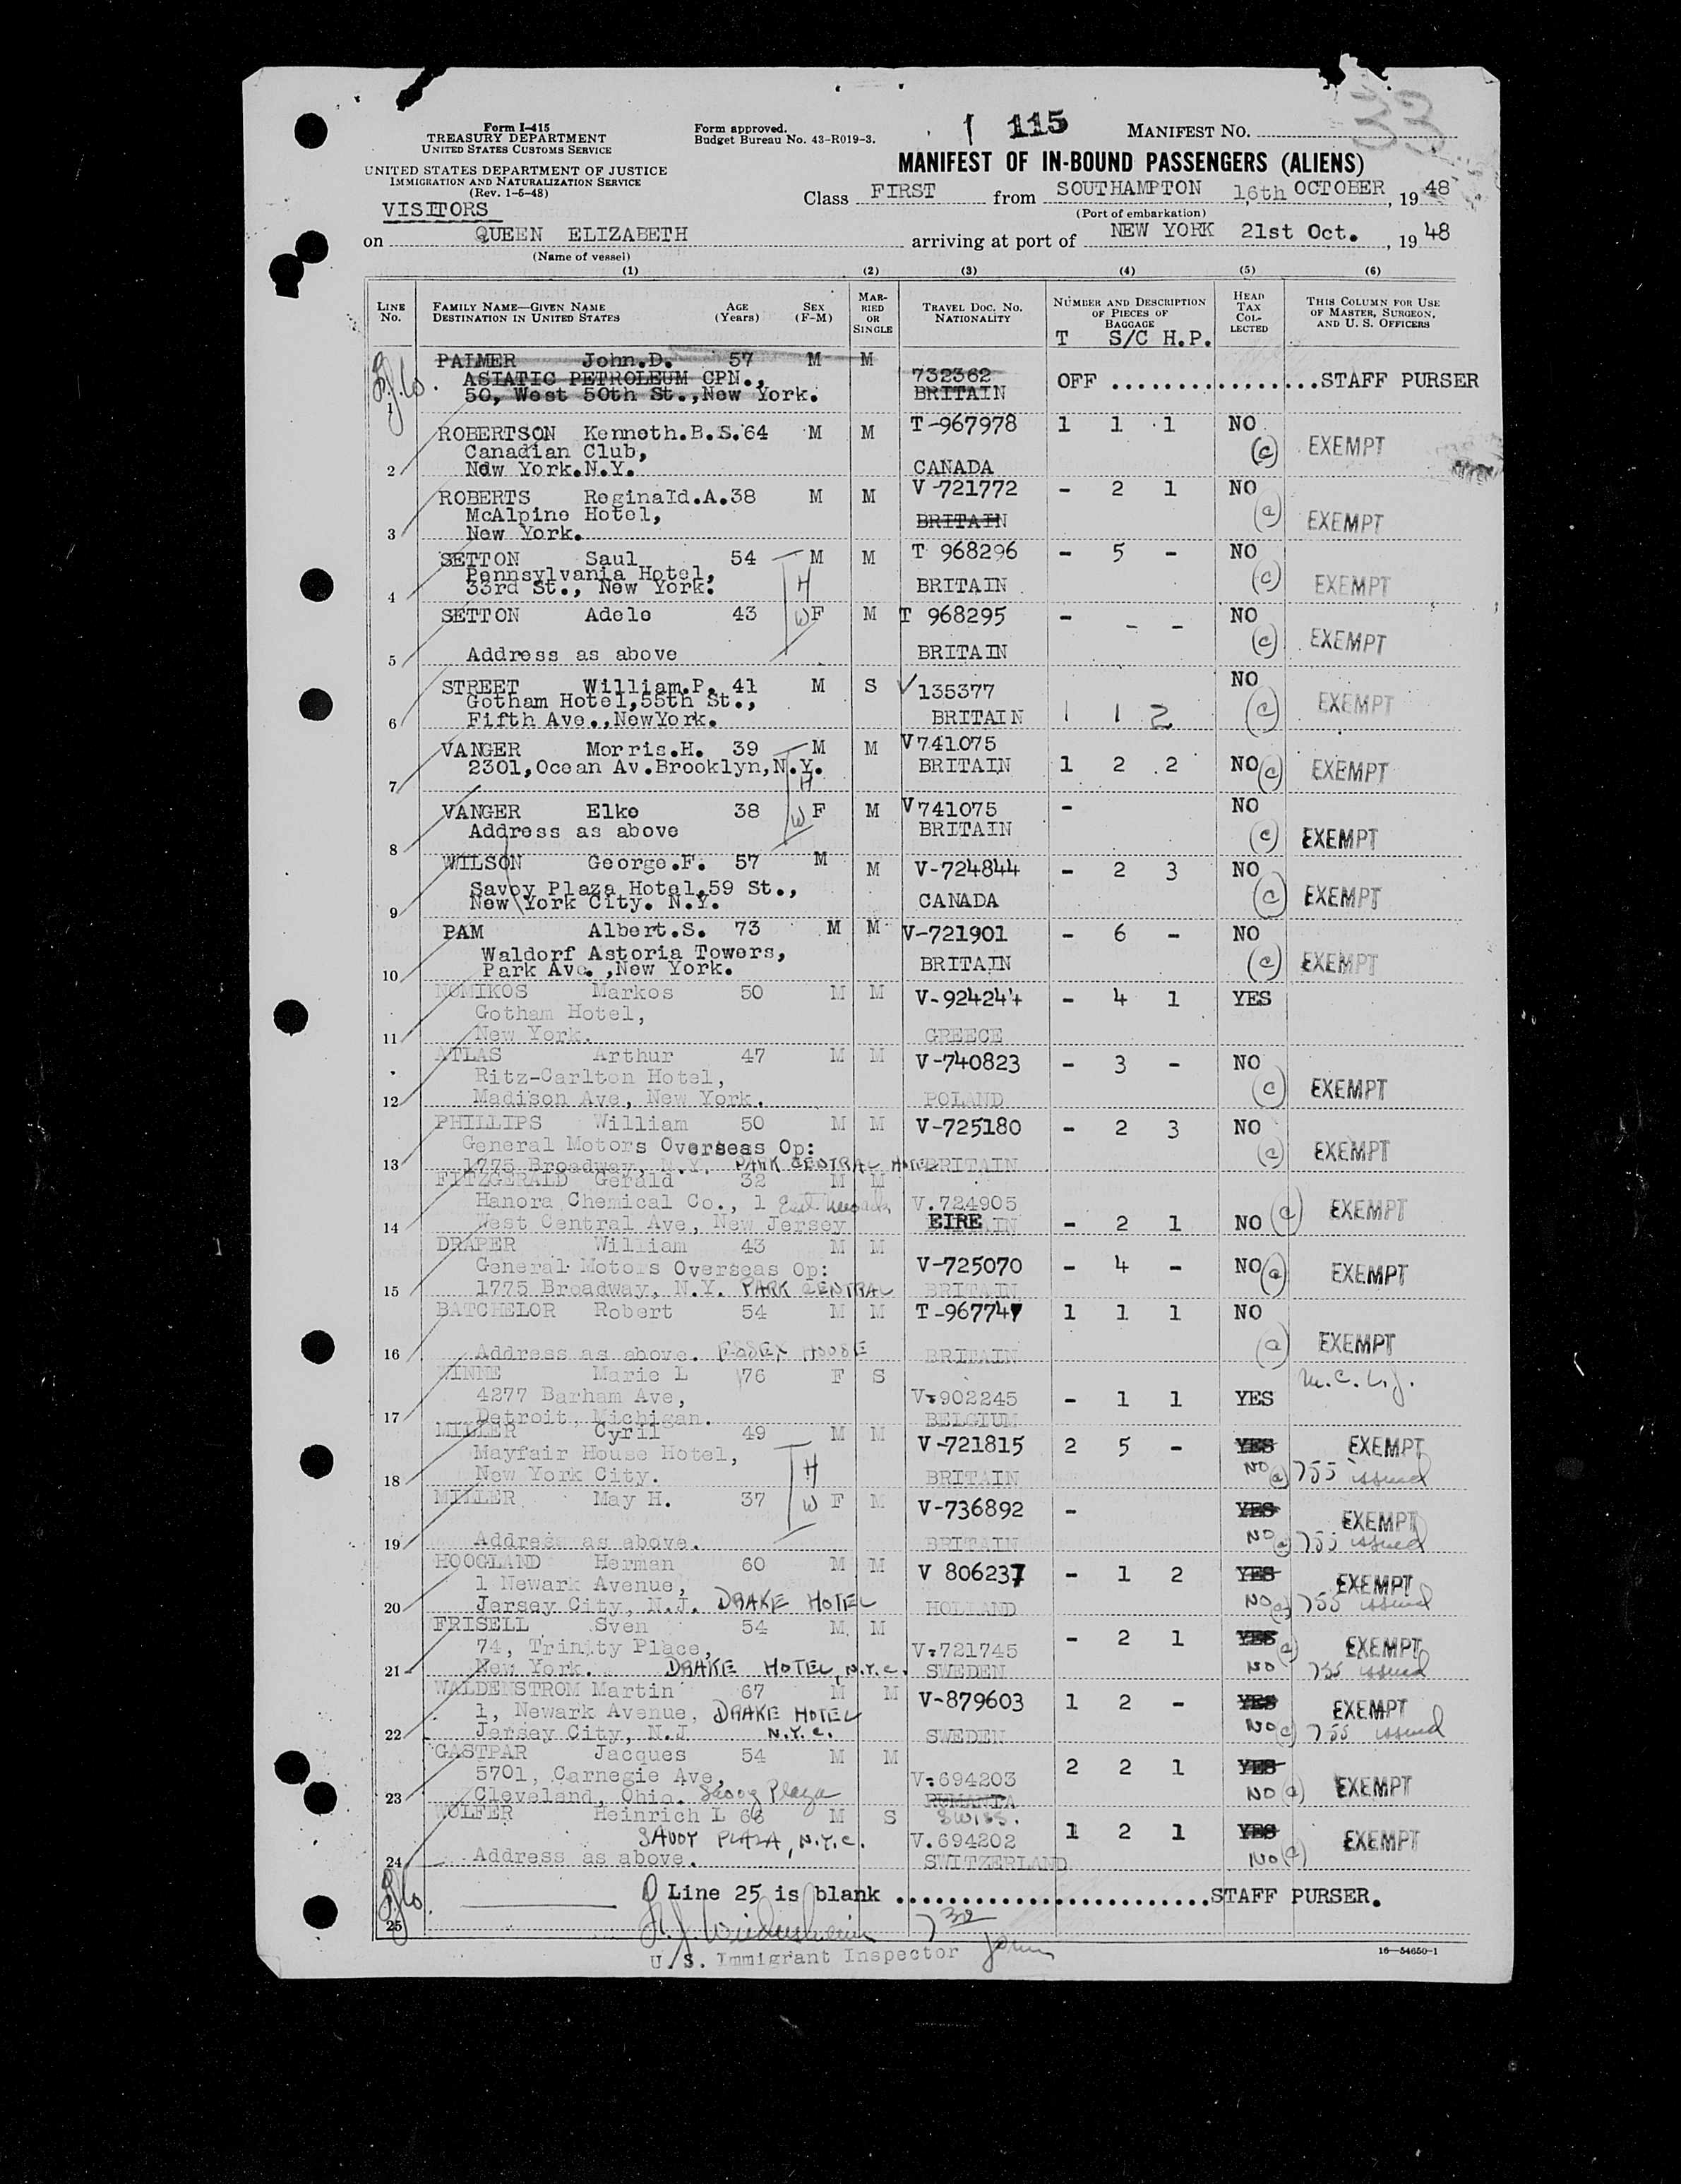 33
Form I-415
TREASURY DEPARTMENT
UNITED STATES CUSTOMS SERVICE
Form approved.
Budget Bureau No. 43-R019-3.
115
MANIFEST NO.
UNITED STATES DEPARTMENT OF JUSTICE
IMMIGRATION AND NATURALIZATION SERVICE
(Rev. 1-5-48)
MANIFEST OF IN-BOUND PASSENGERS (ALIENS)
VISITORS
Class FIRST from SOUTHAMPTON 16th OCTOBER, 1948
(Port of embarkation)
on QUEEN ELIZABETH arriving at port of NEW YORK 21st Oct., 1948
(Name of vessel)
(1) (2) (3) (4) (5) (6)
LINE No. FAMILY NAME—GIVEN NAME DESTINATION IN UNITED STATES AGE (Years) SEX (F-M) MARRIED OR SINGLE TRAVEL DOC. NO. NATIONALITY NUMBER AND DESCRIPTION OF PIECES OF BAGGAGE HEAD TAX COLLECTED THIS COLUMN FOR USE OF MASTER, SURGEON, AND U. S. OFFICERS
T S/C H.P.
PALMER John.D. 57 M M 732362
ASIATIC PETROLEUM CPN., BRITAIN OFF ................STAFF PURSER
1 50, West 50th St.,New York.
ROBERTSON Kenneth.B.S. 64 M M T-967978 1 1 1 NO
Canadian Club, (c) EXEMPT
2 New York.N.Y. CANADA
ROBERTS Reginald.A. 38 M M V-721772 - 2 1 NO
McAlpine Hotel, BRITAIN (c) EXEMPT
3 New York.
SETTON Saul 54 M M T 968296 - 5 - NO
Pennsylvania Hotel, H (c) EXEMPT
4 33rd St., New York. BRITAIN
SETTON Adele 43 W F M T 968295 - - - NO
5 Address as above BRITAIN (c) EXEMPT
STREET William.P. 41 M S V 135377 NO
Gotham Hotel,55th St., (c) EXEMPT
6 Fifth Ave.,NewYork. BRITAIN 1 1 2
VANGER Morris.H. 39 M M V741075
2301,Ocean Av.Brooklyn,N.Y. BRITAIN 1 2 2 NO (c) EXEMPT
7 H
VANGER Elke 38 W F M V741075 - NO
8 Address as above BRITAIN (c) EXEMPT
WILSON George.F. 57 M M V-724844 - 2 3 NO
Savoy Plaza Hotel,59 St.,
9 New York City. N.Y. CANADA (c) EXEMPT
PAM Albert.S. 73 M M V-721901 - 6 - NO
Waldorf Astoria Towers,
10 Park Ave.,New York. BRITAIN (c) EXEMPT
NOMIKOS Markos 50 M M V-924244 - 4 1 YES
Gotham Hotel,
11 New York. GREECE
ATLAS Arthur 47 M M V-740823 - 3 - NO
Ritz-Carlton Hotel,
12 Madison Ave, New York. POLAND (c) EXEMPT
PHILLIPS William 50 M M V-725180 - 2 3 NO
General Motors Overseas Op:
13 1775 Broadway, N.Y. PARK CENTRAL HOTEL BRITAIN (c) EXEMPT
FITZGERALD Gerald 32 M M
Hanora Chemical Co., 1 V.724905
14 West Central Ave, New Jersey EIRE - 2 1 NO (c) EXEMPT
DRAPER William 43 M M
General Motors Overseas Op: V-725070 - 4 - NO (c) EXEMPT
15 1775 Broadway, N.Y. PARK CENTRAL BRITAIN
BATCHELOR Robert 54 M M T-967747 1 1 1 NO
16 Address as above. ESSEX HOUSE BRITAIN (c) EXEMPT
WINNE Marie L 76 F S M.C.L.J.
4277 Barham Ave, V-902245 - 1 1 YES
17 Detroit, Michigan. BELGIUM
MILLER Cyril 49 M M V-721815 2 5 - YES EXEMPT
Mayfair House Hotel, H
18 New York City. BRITAIN NO (c) 755 issued
MILLER May H. 37 W F M V-736892 - YES EXEMPT
19 Address as above. BRITAIN NO (c) 755 issued
HOOGLAND Herman 60 M M V 806237 - 1 2 YES EXEMPT
1 Newark Avenue,
20 Jersey City, N.J. DRAKE HOTEL HOLLAND NO (c) 755 issued
FRISELL Sven 54 M M
74, Trinity Place, V-721745 - 2 1 YES (c) EXEMPT
21 New York. DRAKE HOTEL, N.Y.C. SWEDEN NO 755 issued
WALDENSTROM Martin 67 M M V-879603 1 2 - YES EXEMPT
1, Newark Avenue, DRAKE HOTEL
22 Jersey City, N.J. N.Y.C. SWEDEN NO (c) 755 issued
GASTPAR Jacques 54 M M
5701, Carnegie Ave, V-694203 2 2 1 YES EXEMPT
23 Cleveland, Ohio. Savoy Plaza RUMANIA NO (c)
WOLFER Heinrich L 66 M S SWISS.
SAVOY PLAZA, N.Y.C. V.694202 1 2 1 YES EXEMPT
24 Address as above. SWITZERLAND NO (c)
Line 25 is blank .........................STAFF PURSER.
25
U.S. Immigrant Inspector
16—54650-1